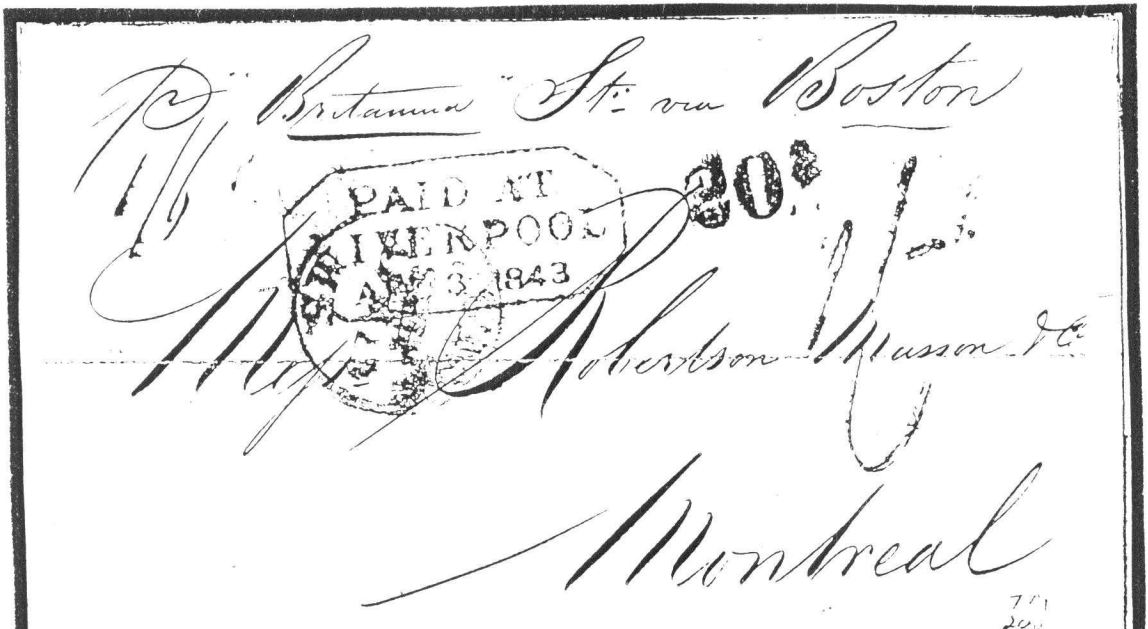 P "Britannia" Str via Boston
1/
PAID AT
LIVERPOOL
AP 3 1843
20
Messrs Robertson Masson & Co
Montreal